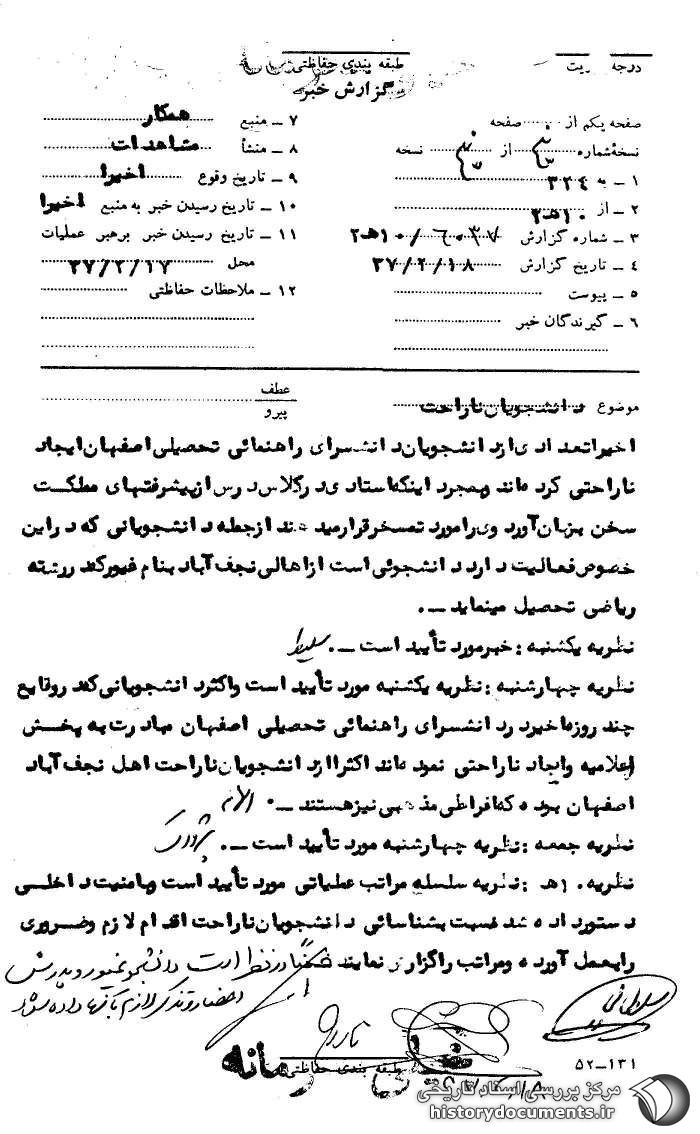 درجه
طبقه بندی حفاظتی
گزارش خبر
صفحه یکم از صفحه
نسخهٔ شماره از نسخه
۱ ـ به ۳۳۴
۲ ـ از ۱۰هـ۲
۳ ـ شماره گزارش ۶۰۳۷ /۱۰هـ۲
۴ ـ تاریخ گزارش ۳۷/۲/۱۸
۵ ـ پیوست
۶ ـ گیرندگان خبر
۷ ـ منبع همکار
۸ ـ منشأ مشاهدات
۹ ـ تاریخ وقوع اخیرا
۱۰ ـ تاریخ رسیدن خبر به منبع اخیرا
۱۱ ـ تاریخ رسیدن خبر برهبر عملیات
محل ۳۷/۲/۱۷
۱۲ ـ ملاحظات حفاظتی
موضوع دانشجویان ناراحت
عطف
پیرو
اخیرا تعدادی از دانشجویان دانشسرای راهنمائی تحصیلی اصفهان ایجاد
ناراحتی کرده‌اند و بمجرد اینکه استادی در کلاس درس از پیشرفتهای مملکت
سخن بزبان آورد وی را مورد تمسخر قرار میدهند از جمله دانشجویانی که در این
خصوص فعالیت دارد دانشجوئی است از اهالی نجف آباد بنام غیور که در رشته
ریاضی تحصیل مینماید ـ.
نظریه یکشنبه : خبر مورد تأیید است ـ.
نظریه چهارشنبه : نظریه یکشنبه مورد تأیید است و اکثر دانشجویانی که در وقایع
چند روزه اخیر در دانشسرای راهنمائی تحصیلی اصفهان مبادرت به پخش
اعلامیه و ایجاد ناراحتی نموده‌اند اکثرا از دانشجویان ناراحت اهل نجف آباد
اصفهان بوده که افراطی مذهبی نیز هستند ـ.
نظریه جمعه : نظریه چهارشنبه مورد تأیید است ـ.
نظریه ۱۰هـ : نظریه سلسله مراتب عملیاتی مورد تأیید است و بامنیت داخلی
دستور داده شد نسبت بشناسائی دانشجویان ناراحت اقدام لازم و ضروری
را بعمل آورده و مراتب را گزارش نمایند ضمنا در نظر است دانشجو غیور و پدرش
احضار و تذکر لازم بآنها داده شود
۵۲ـ۱۳۱
طبقه بندی حفاظتی
مرکز بررسی اسناد تاریخی
historydocuments.ir